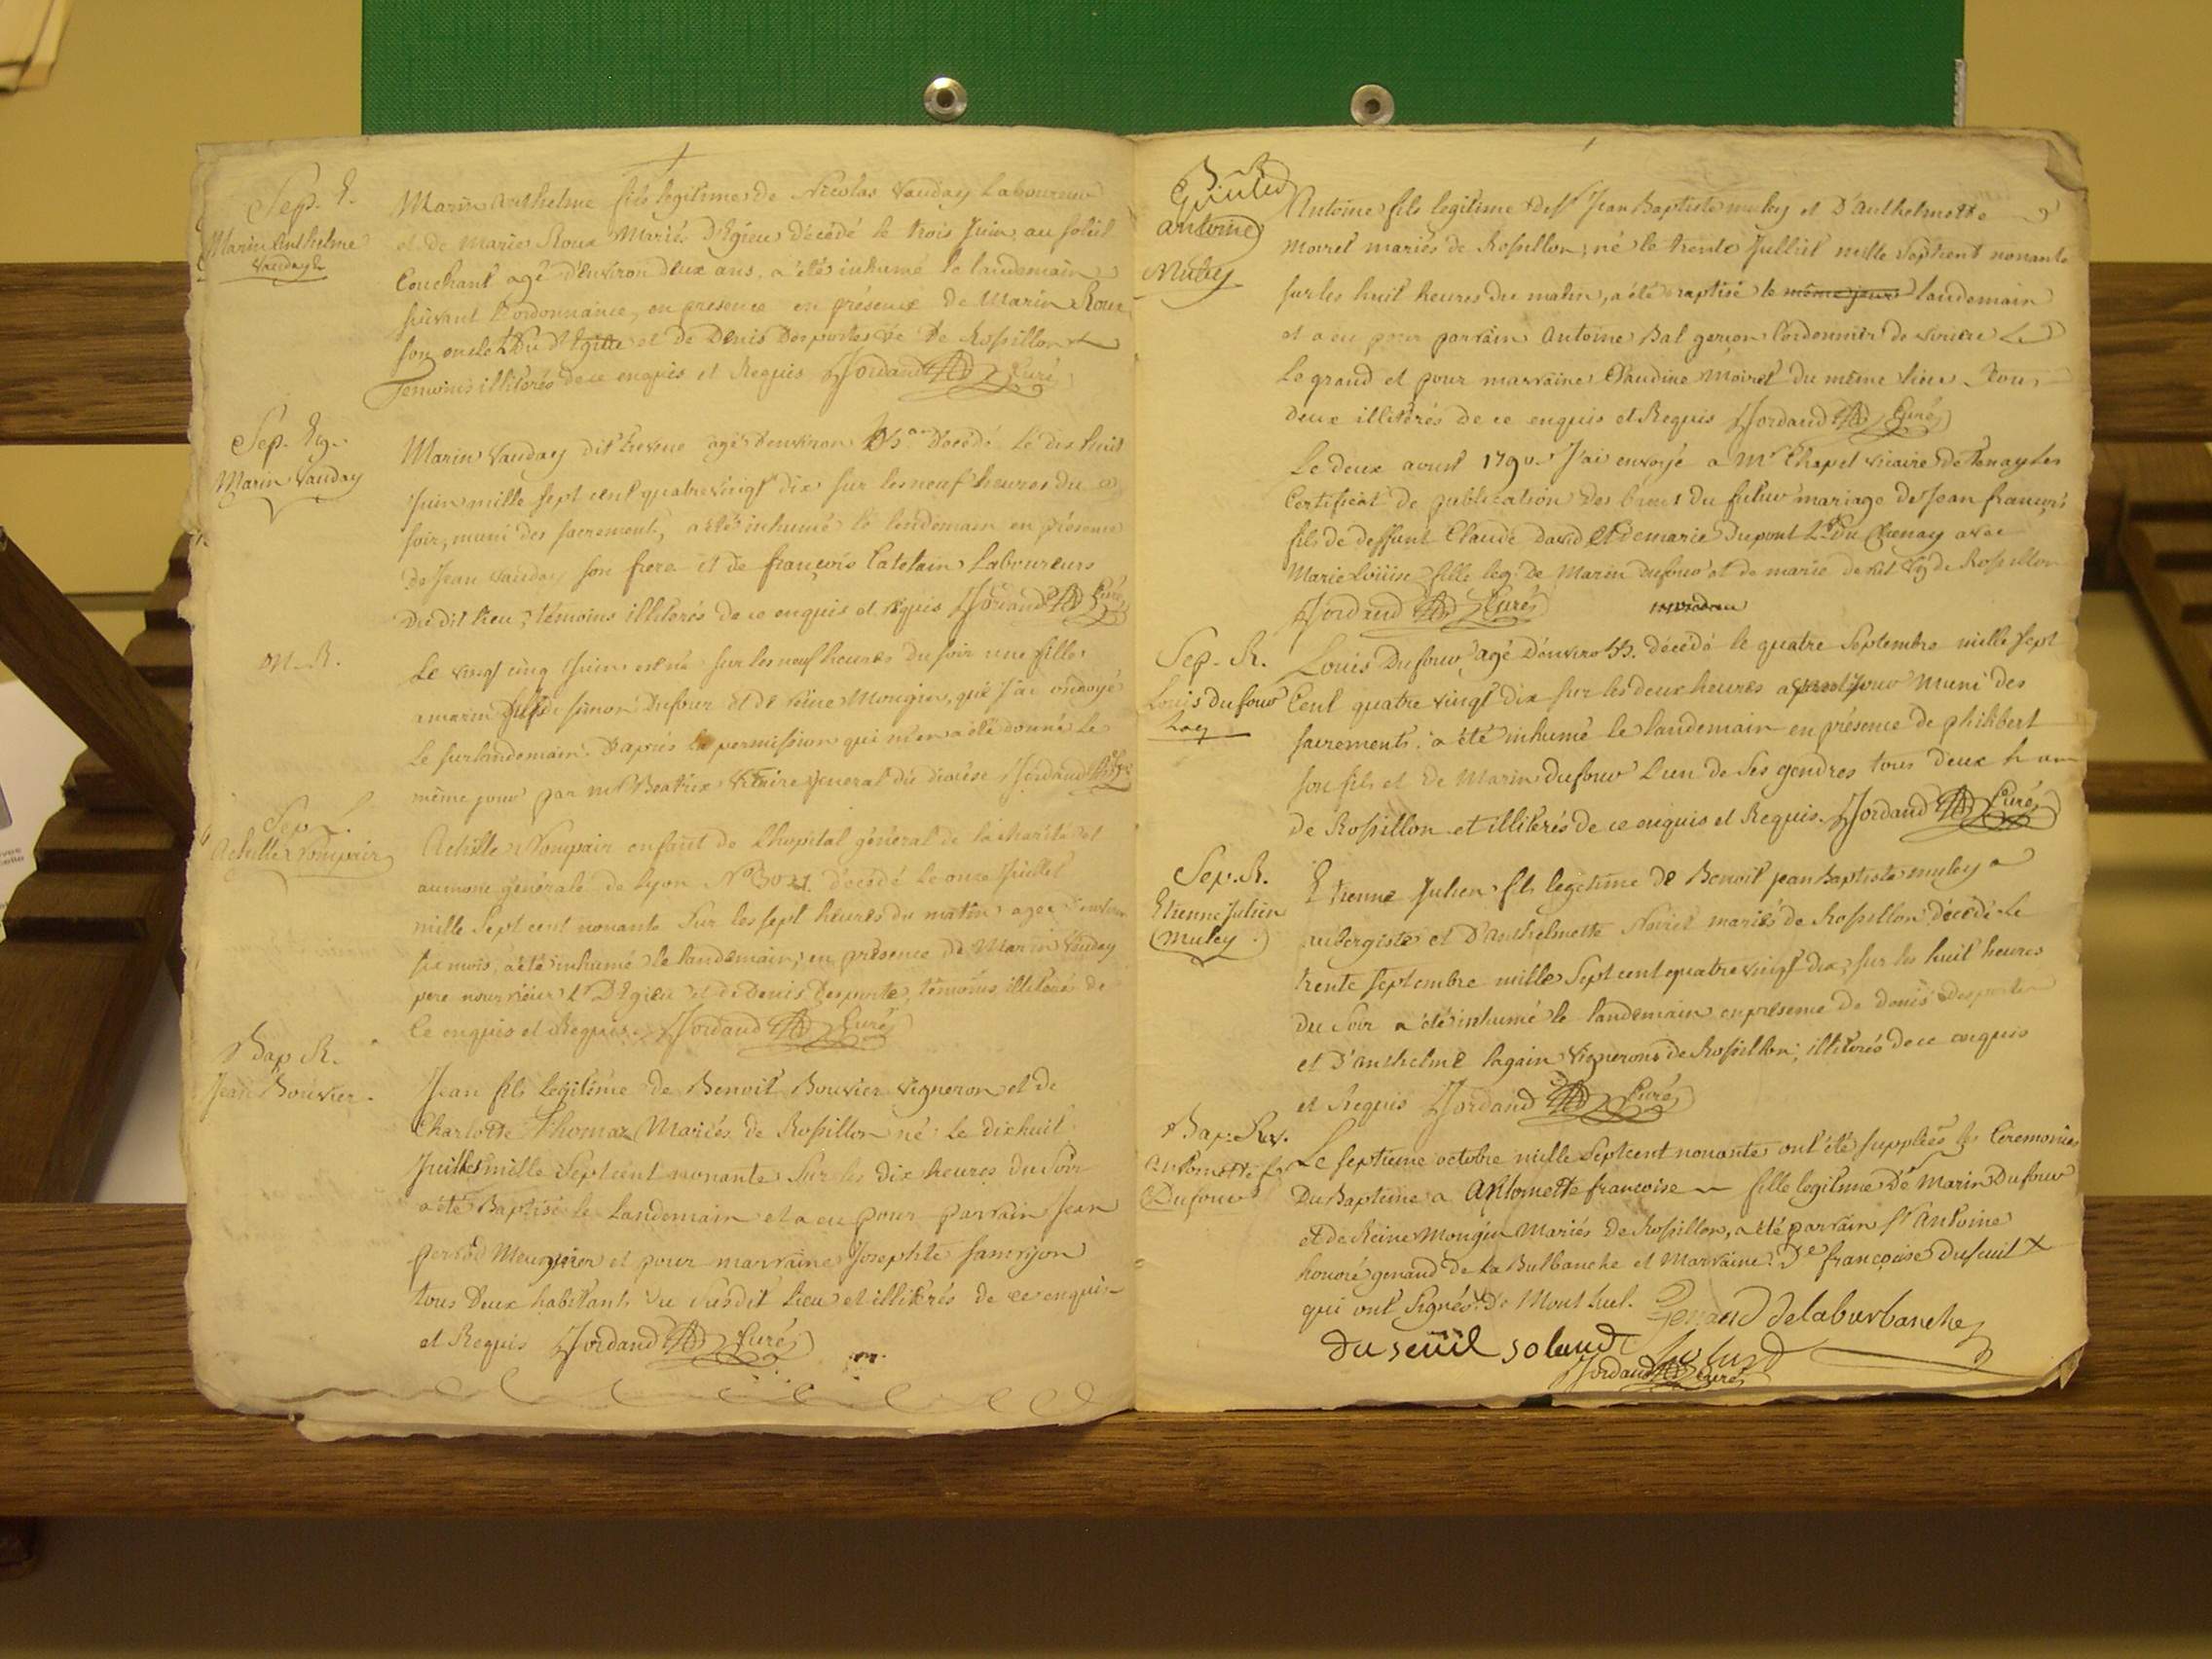 Sep. E.
Marin Anthelme
Vauday
Marin Anthelme fils legitime de Nicolas Vauday Laboureur
et de Marie Roux Mariés d'Egieu décédé le trois Juin, au soleil
Couchant agé d'Environ deux ans, a été inhumé le landemain
suivant l'ordonnance, en presence en présence de Marin Roux
son oncle et de Denis Desportes de Rossillon
Temoins illiterés de ce enquis et Requis Jordand Curé
Sep. Eg.
Marin Vauday
Marin Vauday dit agé d'environ décédé le dix huit
Juin mille sept cent quatre vingt dix sur les neuf heures du
soir, muni des sacrements, a été inhumé le lendemain en présence
de Jean Vauday son frere et de françois Catelain Laboureurs
Du dit Lieu, témoins illiterés de ce enquis et requis Jordand Curé
on. R.
Le vingt cinq Juin est né sur les neuf heures du soir une fille
a marin Dufour et de reine Mongin, que j'ai ondoyé
le surlandemain. D'après la permission qui m'en a été donné le
même jour par mr Beatrix Vicaire general du diocèse Jordand
Sep
Achille Pompair
Achille Pompair enfant de L'hopital général de la charité et
aumone générale de Lyon No décédé le onze Juillet
mille Sept cent nonante Sur les sept heures du matin agé d'environ
six mois, a été inhumé le landemain, en présence de Marin Vauday
pere nourricier D'Egieu et de Denis Desporte, témoins illiterés de
Ce enquis et Requis. Jordand Curé
Bap R.
Jean Bouvier.
Jean fils Legitime de Benoit Bouvier vigneron et de
Charlotte Thomas Mariés de Rossillon né le dixhuit
Juillet mille Sept cent nonante Sur les dix heures du Soir
a été Baptisé le Landemain et a eu pour parrain Jean
et pour marraine Josephte
tous Deux habitants du susdit Lieu et illiterés de ce enquis
et Requis Jordand Curé
B R
Antoine
Muley
Antoine fils legitime de Sr Jean Baptiste muley et D'Anthelmette
Moiret mariés de Rossillon, né le trente Juillet mille Septcent nonante
sur les huit heures du matin, a été baptisé le même jour landemain
et a eu pour parrain Antoine Bal Cordonnier de virieu Le
Le grand et pour marraine Claudine Moiret Du même lieu Tous
deux illiterés de ce enquis et Requis Jordand Curé
Le deux aoust 1790. J'ai envoyé a Mr Chapel vicaire de Tenay Les
Certificat de publication des bans du futur mariage de Jean françois
fils de deffunt Claude David et de marie Dupont Du Chenay avec
Marie Loüise fille leg. De Marin Dufour et de marie Vig de Rossillon
Jordand Curé
Sep. R.
Louis Dufour
Louis Dufour agé D'environ décédé le quatre Septembre mille sept
Cent quatre vingt dix sur les deux heures Muni des
sacrements, a été inhumé le landemain en présence de philibert
son fils et de Marin Dufour L'un de Ses gendres tous deux
de Rossillon et illiterés de ce enquis et Requis. Jordand Curé
Sep. R.
Etienne Julien
Muley.
Etienne Julien fils legitime de Benoit jean Baptiste muley
aubergiste et D'anthelmette Moiret mariés de Rossillon décédé Le
trente septembre mille Sept cent quatre vingt dix, sur les huit heures
du Soir a été inhumé le landemain en presence de denis Desportes
et D'anthelme lagain vignerons de Rossillon, illiterés de ce enquis
et Requis Jordand Curé
Bap. Ros.
Antoinette f
Dufour
Le septieme octobre mille Septcent nonante ont été suppléés les Ceremonies
Du Bapteme a Antoinette françoise fille legitime De Marin Dufour
et de Reine Mongin Mariés de Rossillon, a été parrain Sr Antoine
honoré genaud de La Bulbanche et Marraine De françoise duseuil
qui ont Signés. Genaud delaburbanche
duseüil soland
Jordand Curé